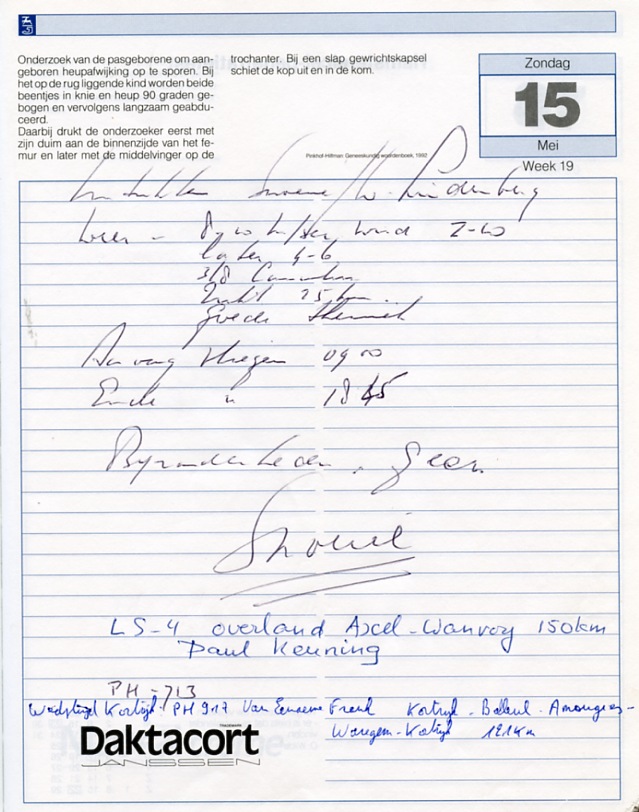 Onderzoek van de pasgeborene om aan-
geboren heupafwijking op te sporen. Bij
het op de rug liggende kind worden beide
beentjes in knie en heup 90 graden ge-
bogen en vervolgens langzaam geabdu-
ceerd.
Daarbij drukt de onderzoeker eerst met
zijn duim aan de binnenzijde van het fe-
mur en later met de middelvinger op de
trochanter. Bij een slap gewrichtskapsel
schiet de kop uit en in de kom.
Pinkhof-Hilfman Geneeskundig woordenboek, 1992
Zondag
15
Mei
Week 19
Lindenberg
wind 2-10
later 4-6
3/8
25 km
Goede thermiek
Aanvang vliegen 0900
Einde " 1845
Byzonderheden. geen
LS-4 overland Axel-Wanroy 150km
Paul Keuning
PH-713
Wedstrijd Kortrijk: PH 917 Van Eenaeme Frank Kortrijk - Amougies -
Waregem - Kortrijk 121Km
Daktacort
JANSSEN